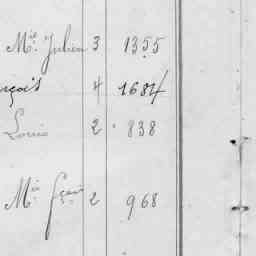 Mie Julien 3 1355
rçois 4 1684
Louis 2 838
Mie frçois 2 968